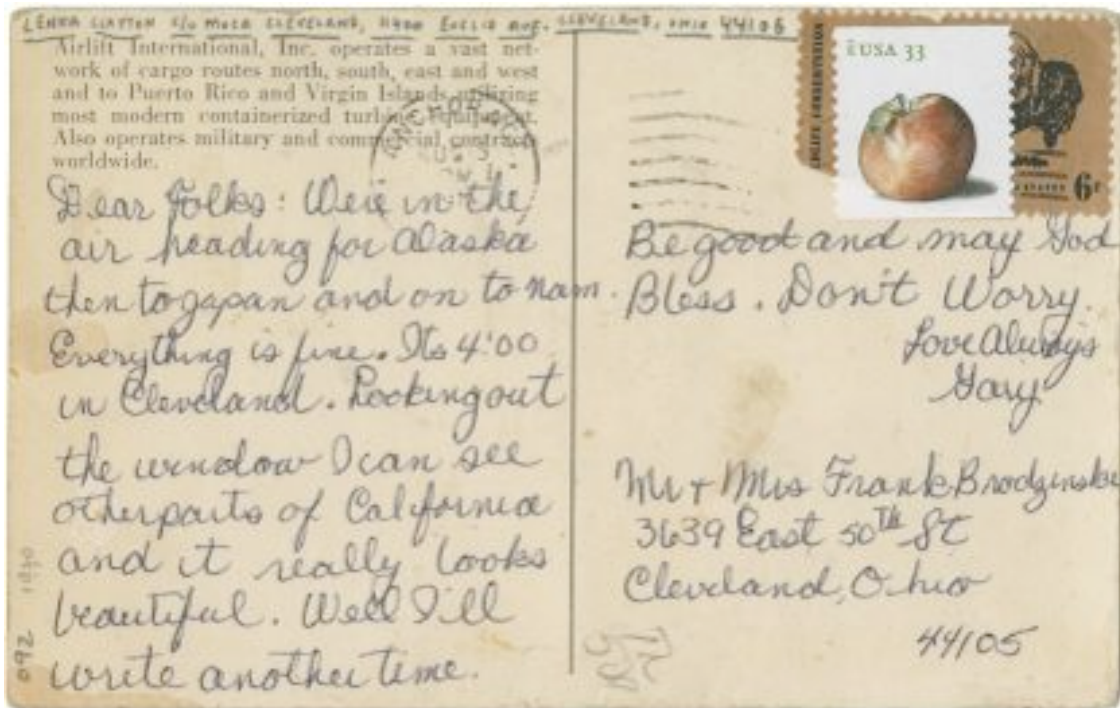 LENKA CLAYTON C/O MOCA CLEVELAND, 11400 EUCLID AVE. CLEVELAND, OHIO 44106
Airlift International, Inc. operates a vast net-
work of cargo routes north, south, east and west
and to Puerto Rico and Virgin Islands utilizing
most modern containerized turbine equipment.
Also operates military and commercial contracts
worldwide.
Dear Folks: We're in the
air heading for Alaska
then to Japan and on to Nam.
Everything is fine. Its 4:00
in Cleveland. Looking out
the window I can see
other parts of California
and it really looks
beautiful. Well I'll
write another time.
092
USA 33
WILDLIFE CONSERVATION
6¢
Be good and may God
Bless. Don't Worry.
Love Always
Gary
Mr + Mrs Frank Brodzinski
3639 East 50TH St
Cleveland, Ohio
44105